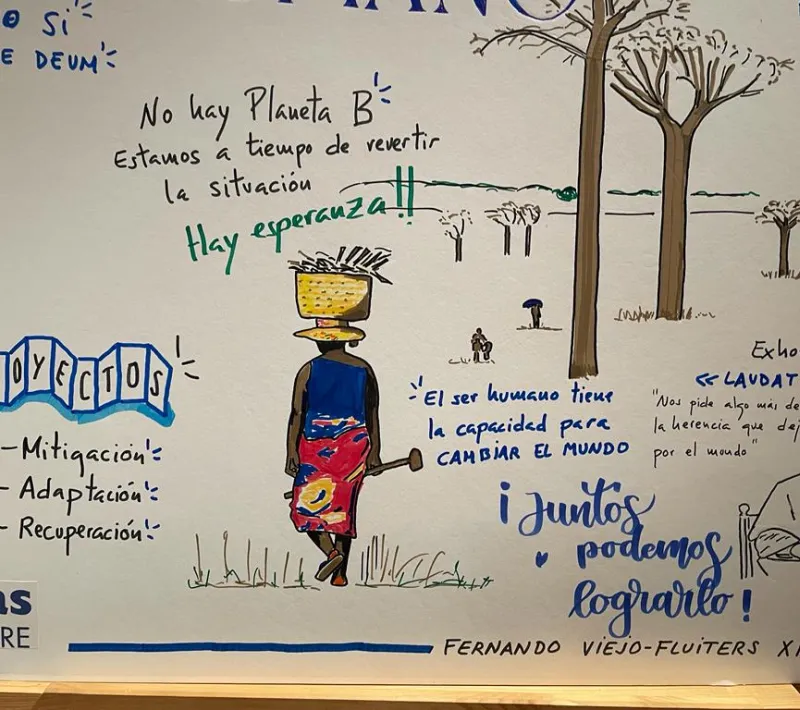 O SI
E DEUM
No hay Planeta B
Estamos a tiempo de revertir
la situación
Hay esperanza!!
OYECTOS
-Mitigación
- Adaptación
- Recuperación
El ser humano tiene
la capacidad para
CAMBIAR EL MUNDO
Exho
« LAUDAT
"Nos pide algo más de
la herencia que dej
por el mundo"
¡Juntos
podemos
lograrlo!
as
RE
FERNANDO VIEJO-FLUITERS XI